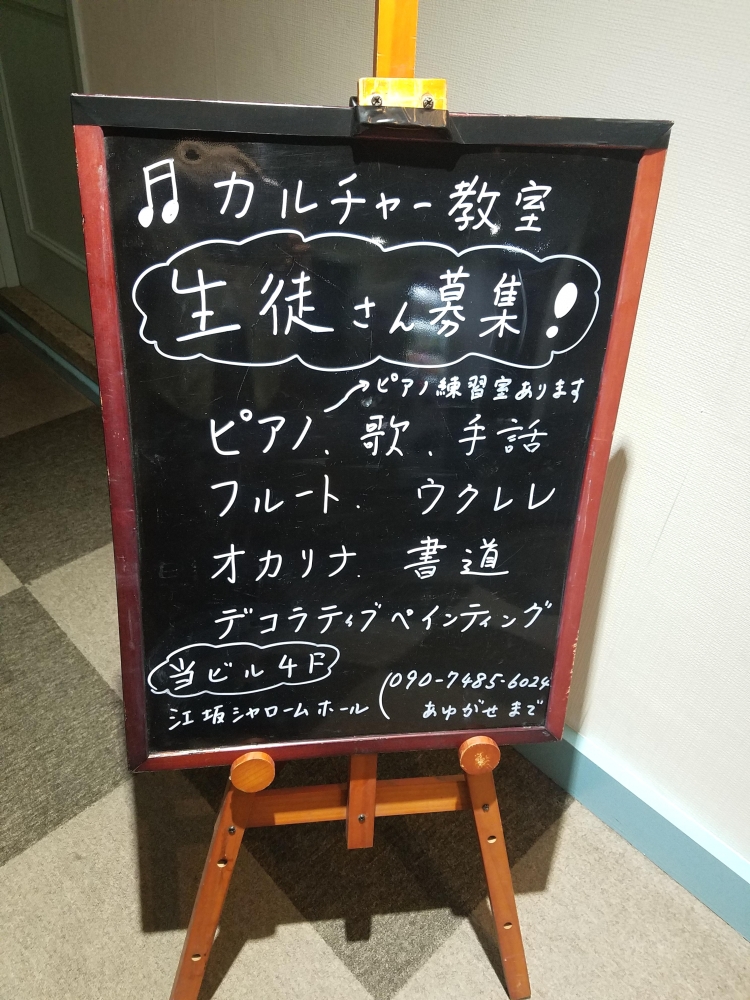 ♫ カルチャー教室
生徒さん募集!
→ピアノ練習室あります
ピアノ、歌、手話
フルート、ウクレレ
オカリナ、書道
デコラティブペインティング
当ビル4F
江坂シャロームホール
(090-7485-6024
あゆがせまで